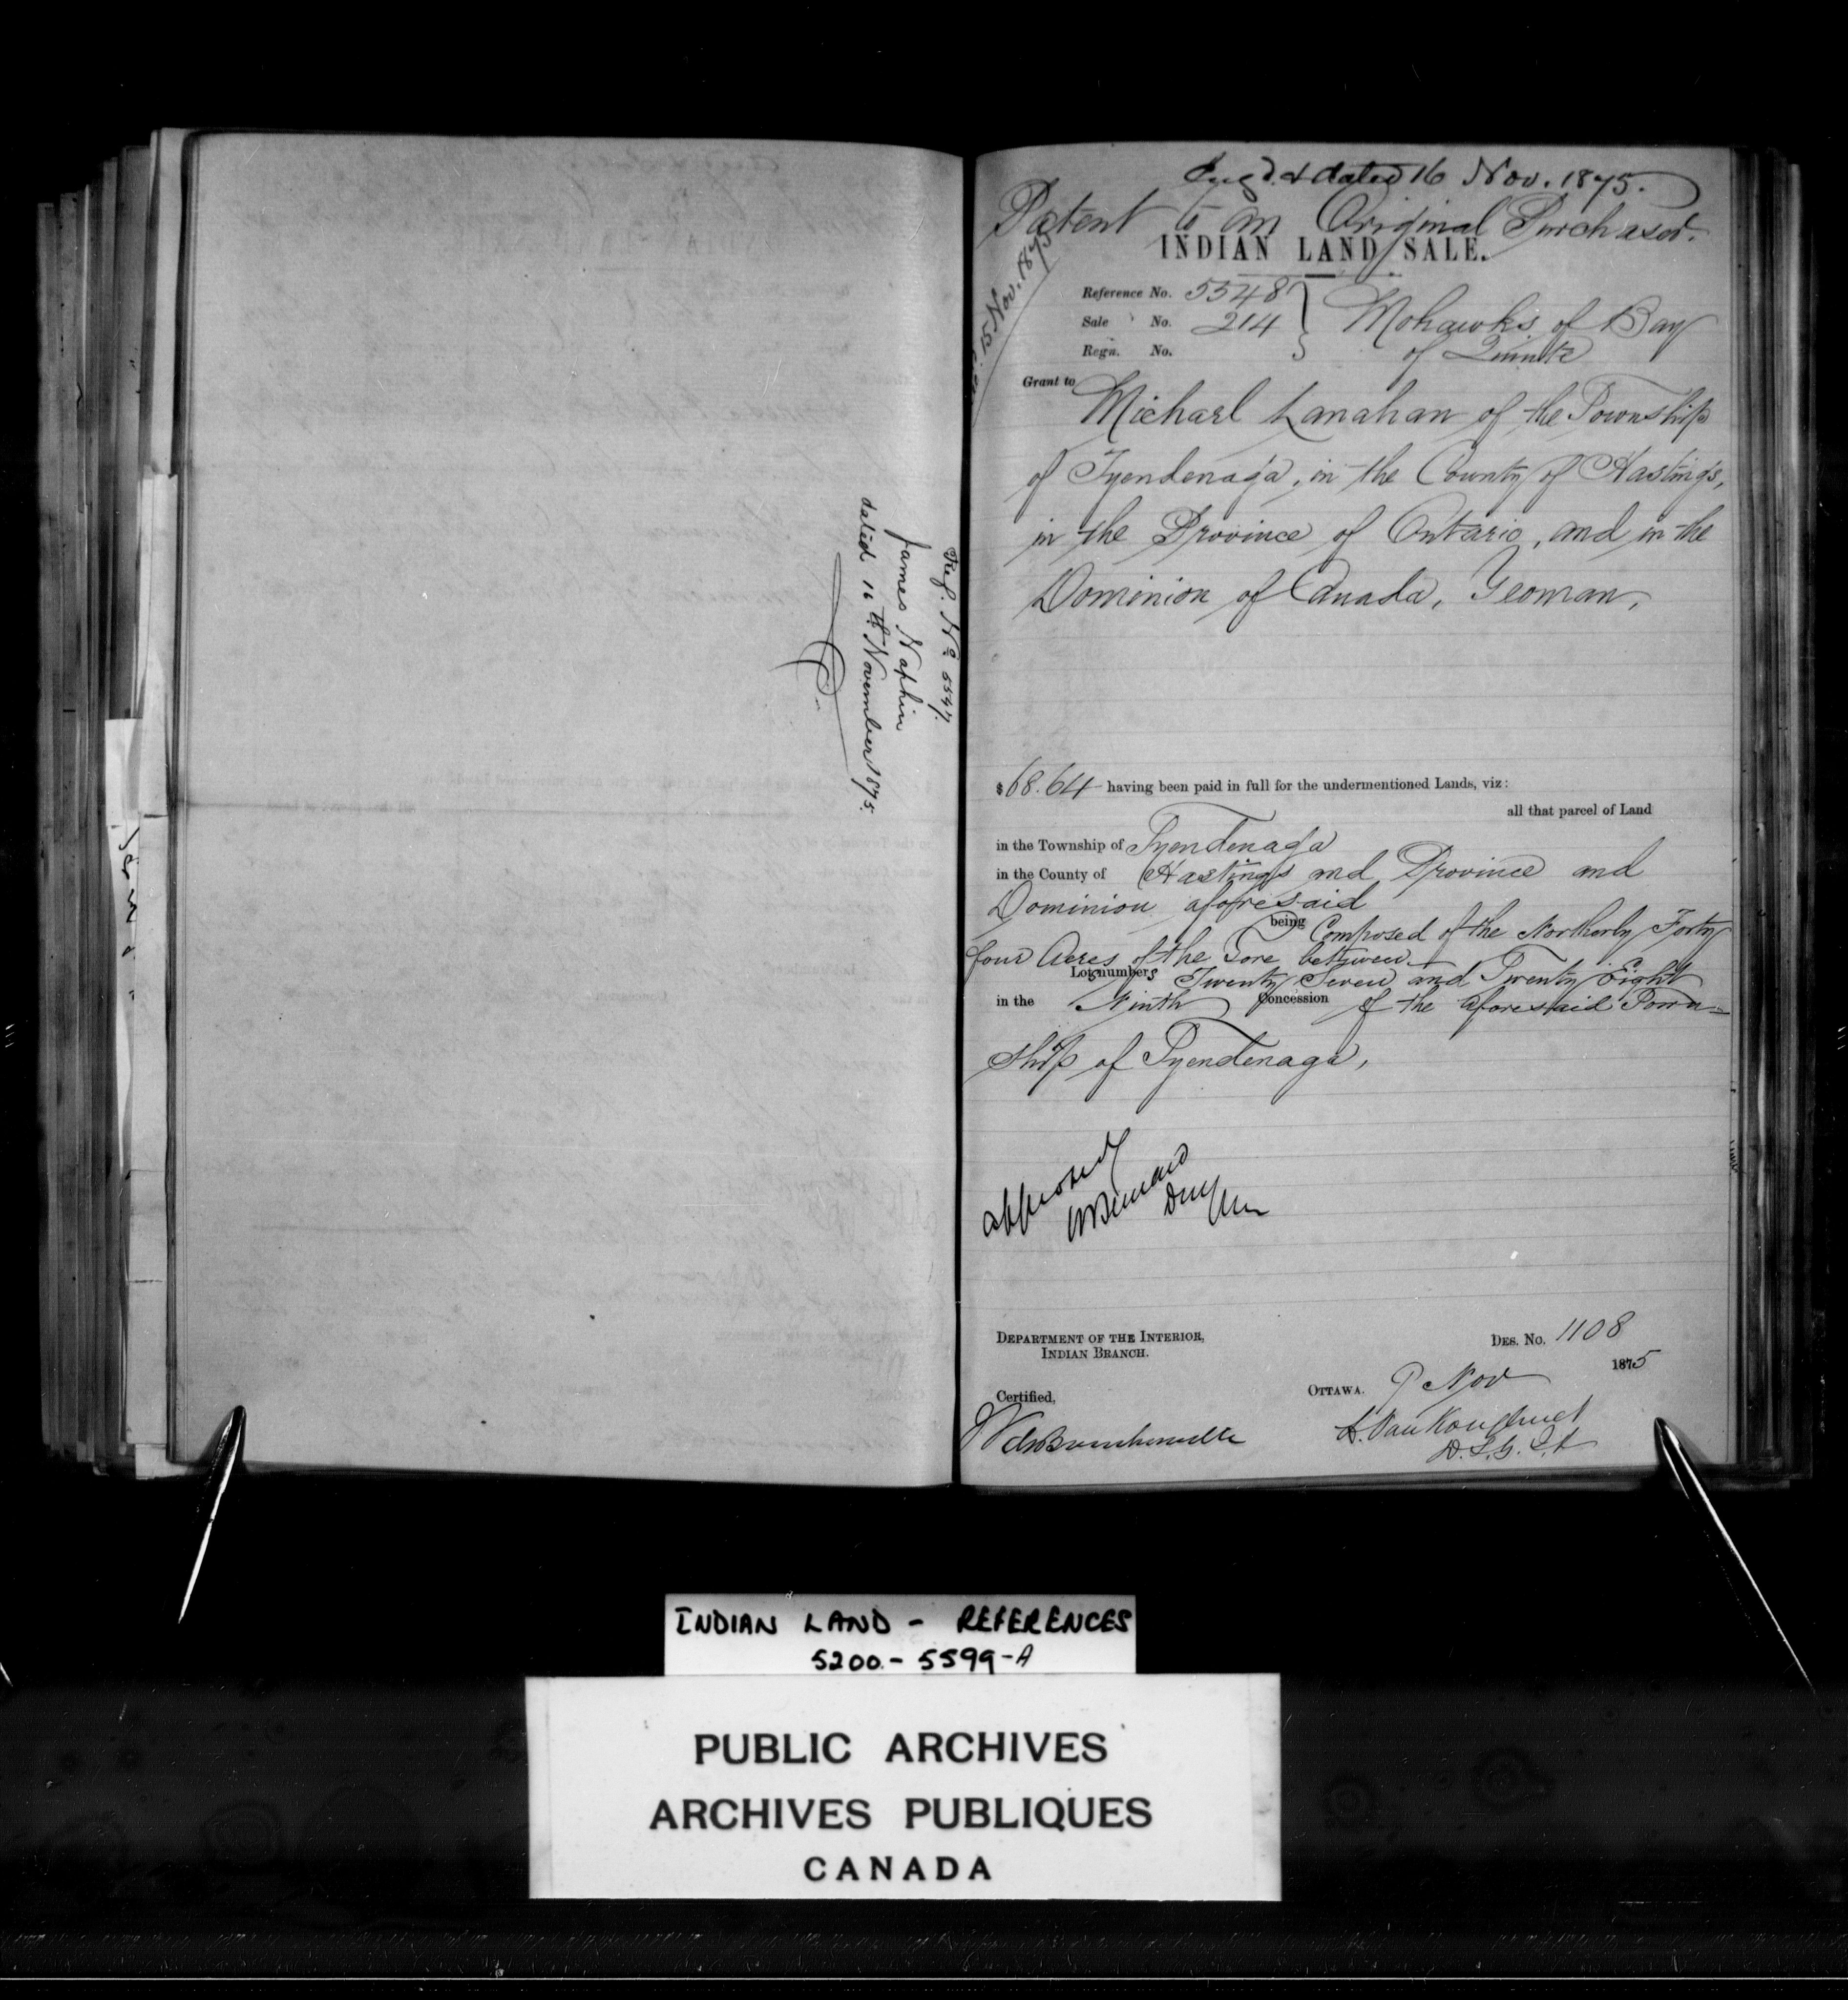 Ref. No 5547.
James Naphin
dated 16th November 1875.
Engd. & dated 16 Nov. 1875.
Patent to an Original Purchaser.
15 Nov. 1875
INDIAN LAND SALE.
Reference No. 5548
Sale No. 214
Mohawks of Bay
Regn. No.
of Quinte
Grant to
Michael Lanahan of the Township
of Tyendenaga, in the County of Hastings,
in the Province of Ontario, and in the
Dominion of Canada, Yeoman,
$68.64 having been paid in full for the undermentioned Lands, viz:
all that parcel of Land
in the Township of Tyendenaga
in the County of Hastings and Province and
Dominion aforesaid
being Composed of the Northerly Forty
four Acres of the Gore between
Lots numbers Twenty Seven and Twenty Eight
in the Ninth Concession of the aforesaid Town-
ship of Tyendenaga,
Approved
H Bernard
DEPARTMENT OF THE INTERIOR,
INDIAN BRANCH.
DES. No. 1108
1875
OTTAWA. 9 Nov
Certified,
L. VanKoughnet
D.S.G. I.A
INDIAN LAND - REFERENCES
5200 - 5599-A
PUBLIC ARCHIVES
ARCHIVES PUBLIQUES
CANADA